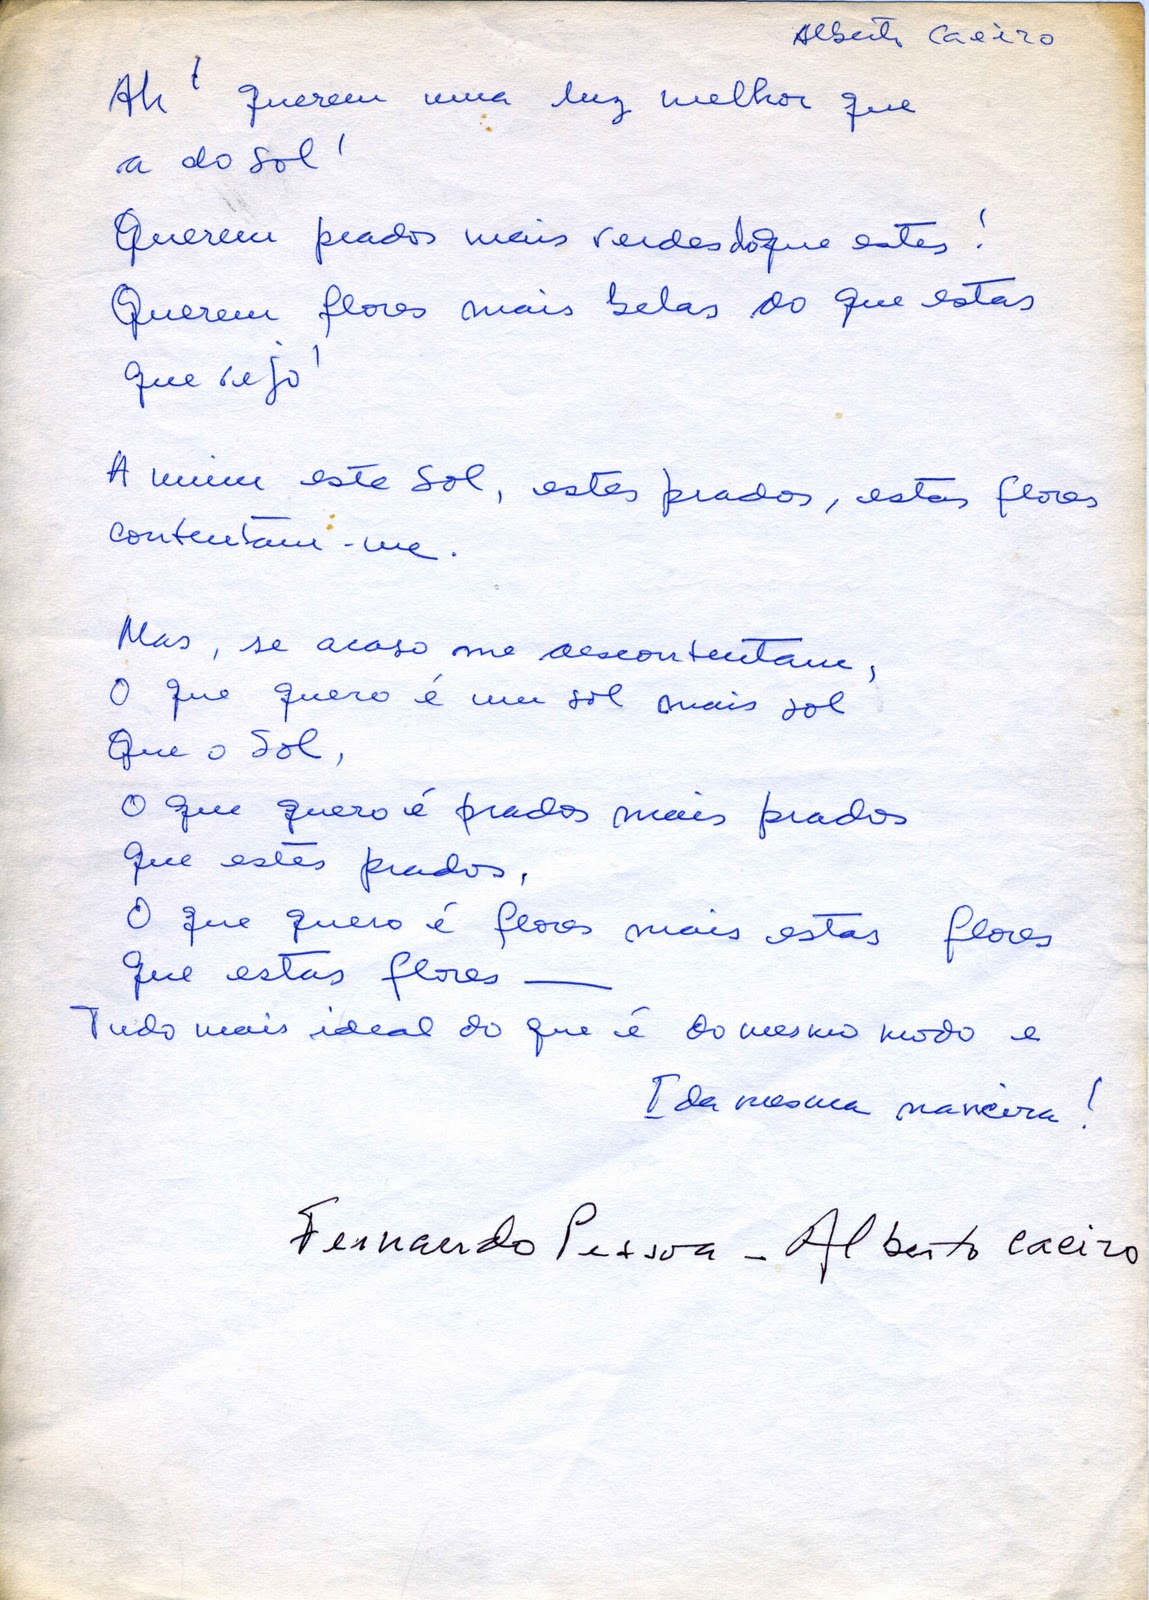 Alberto Caeiro
Ah! querem uma luz melhor que
a do Sol!
Querem prados mais verdes do que estes!
Querem flores mais belas do que estas
que vejo!
A mim este Sol, estes prados, estas flores
contentam-me.
Mas, se acaso me descontentam,
O que quero é um sol mais sol
Que o Sol,
O que quero é prados mais prados
que estes prados,
O que quero é flores mais estas flores
que estas flores —
Tudo mais ideal do que é do mesmo modo e
[da mesma maneira!
Fernando Pessoa - Alberto Caeiro